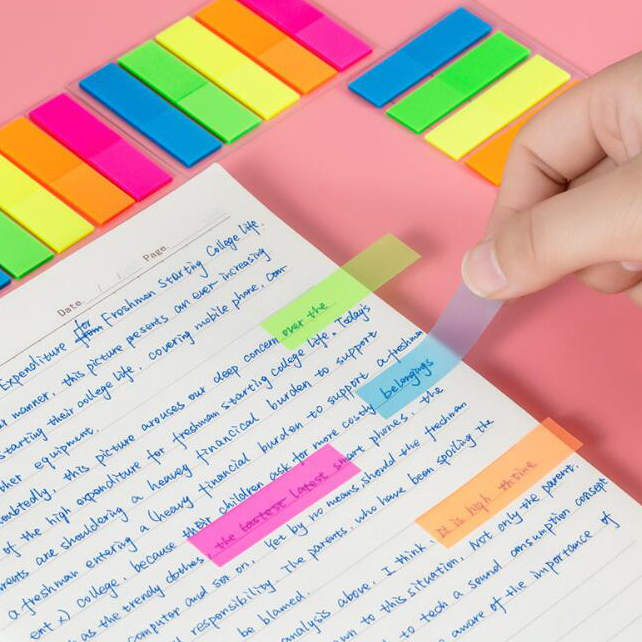 Date. / / Page.
Expenditure for Freshman Starting College life.
manner. this picture presents an ever increasing
starting their college life. covering mobile phone, com-
other equipment.
this picture arouses our deep concern over the
of the high expenditure for freshman starting college life. Todays
are shouldering a heavy financical burden to support
a freshman entering a (heavy financial burden to support a freshman
college. because their children ask for more costly belongings
as the trendy clothes, the lastest latest smart phones, the
computer and so on. Yet by no means should the freshman
responsibility. The parents, who have been spoiling the
be blamed.
analysis above, I think. It is high thtime
to this situation. Not only the parent.
to tech a sound consumption concept
aware of the importance of